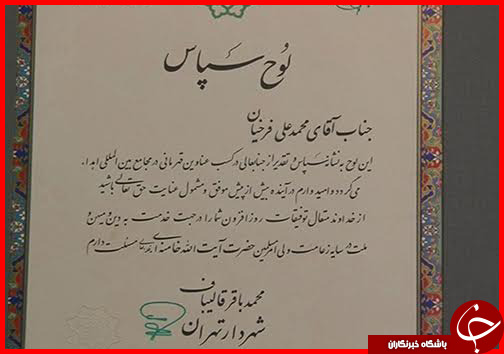 لوح سپاس
جناب آقای محمد علی فرخیان
این لوح به نشانه سپاس و تقدیر از جنابعالی در کسب عناوین قهرمانی در مجامع بین المللی اهداء
می گردد و امیدوارم در آینده بیش از پیش موفق و مشمول عنایت حق تعالی باشید
از خداوند متعال توفیقات روزافزون شما را در جهت خدمت به دین و میهن و
ملت در سایه زعامت ولی امر مسلمین حضرت آیت الله خامنه ای مسئلت دارم
محمد باقر قالیباف
شهردار تهران
باشگاه خبرنگاران